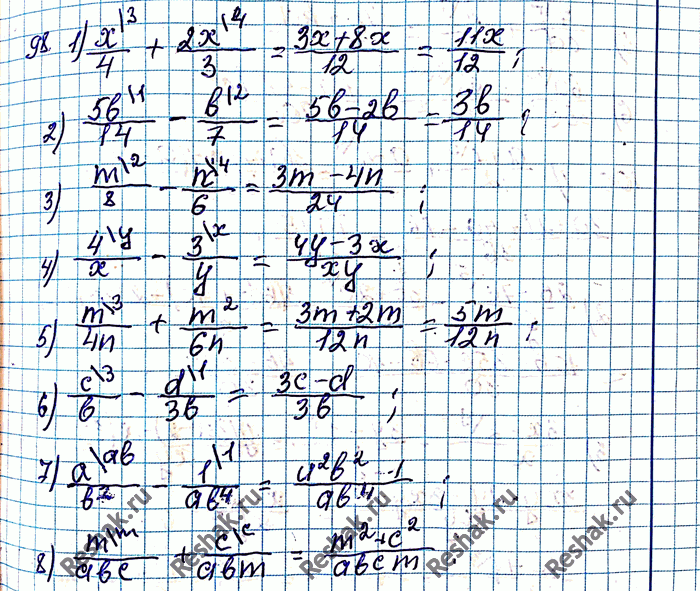 98. 1) x\3/4 + 2x\4/3 = (3x+8x)/12 = 11x/12 ;
2) 5b\1/14 - b\2/7 = (5b-2b)/14 = 3b/14 ;
3) m\2/8 - n\4/6 = (3m-4n)/24 ;
4) 4\y/x - 3\x/y = (4y-3x)/xy ;
5) m\3/4n + m²/6n = (3m+2m)/12n = 5m/12n ;
6) c\3/b - d\1/3b = (3c-d)/3b ;
7) a\ab/b² - 1\1/ab⁴ = (a²b²-1)/ab⁴ ;
8) m\m/abc + c\c/abm = (m²+c²)/abcm ;
Reshak.ru Reshak.ru Reshak.ru Reshak.ru Reshak.ru